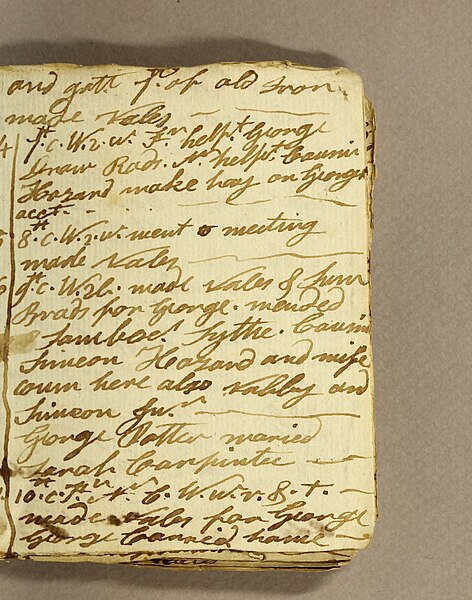 and gott ps. of old Iron
made nales
4 7th. c. W. 2. w. Jn. help't George
Draw Rods. Nr. help't Cousin
Hazard make hay on George
acct.
5 8th. c. W. 2. w. went to meeting
made nales
6 9th. c. W. 2 b. made nales &
Brads for George. mended
Sythe. Cousin
Simeon Hazard and wife
coum here also nabby and
Simeon Junr
George Potter maried
Sarah Carpinter
10th. c. W. w. &
made nales for George
George Carried home